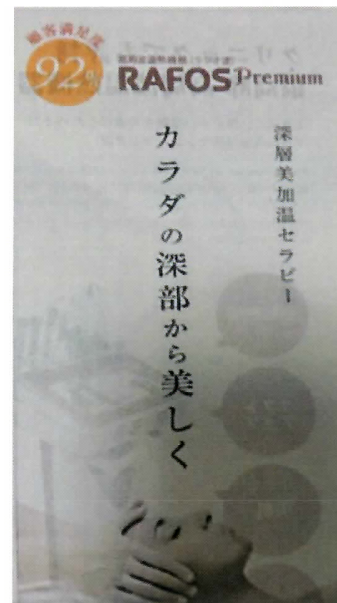 顧客満足度
92%
RAFOS Premium
深層美加温セラピー
カラダの深部から美しく